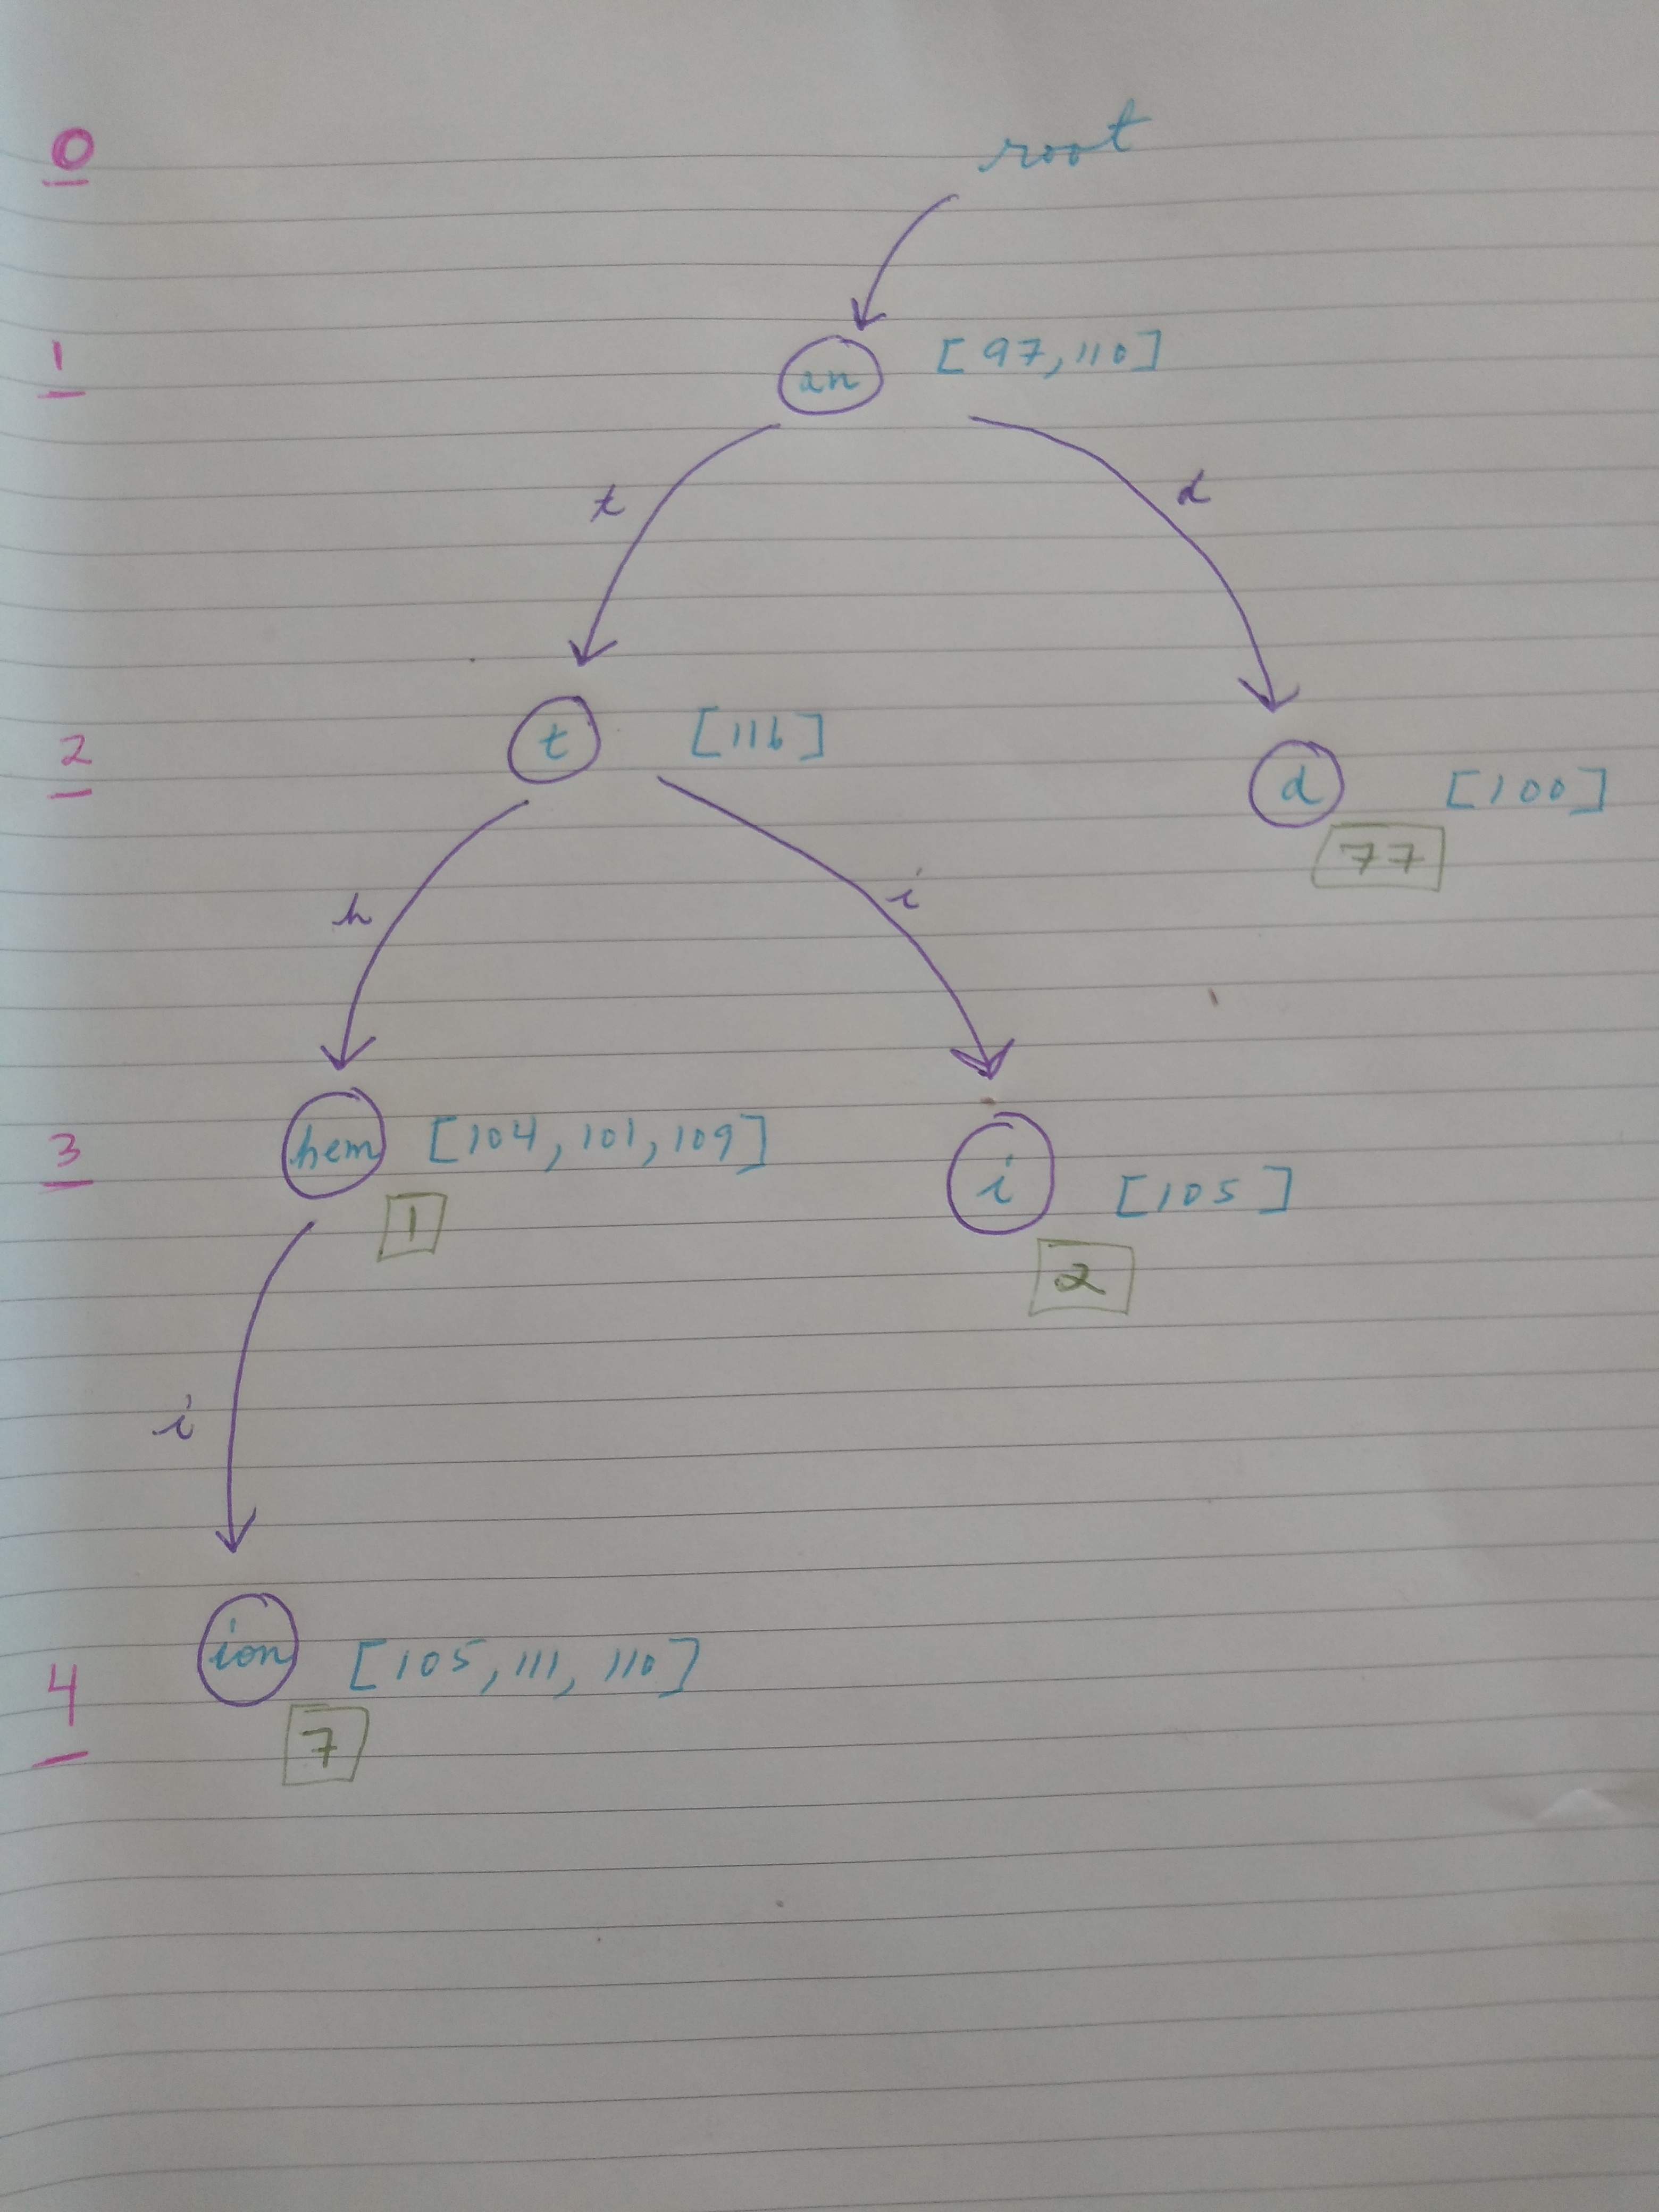 0
root
1
an [97,110]
t d
2
t [116]
d [100]
77
h i
3
hem [104,101,109]
i [105]
1
2
i
4
ion [105,111,110]
7